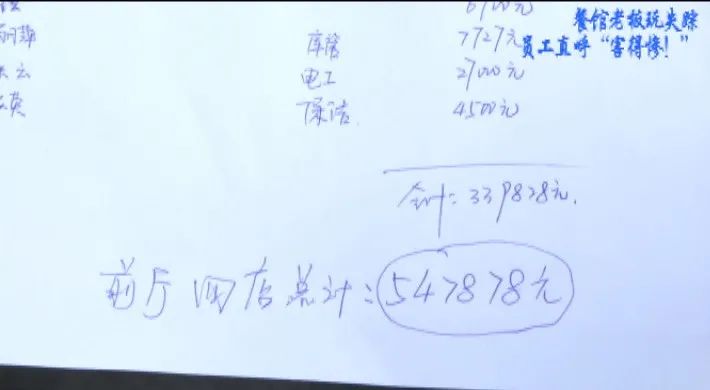 餐馆老板玩失踪
员工直呼“害得惨！”
库管 7727元
电工 27000元
保洁 4500元
合计：339828元.
前厅四店总计：547878元